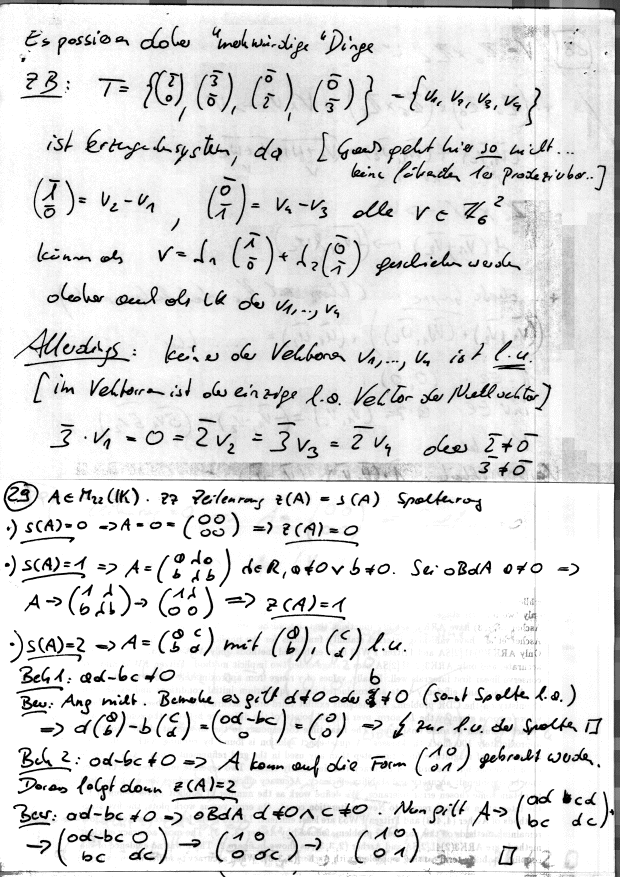 Es passieren daher "merkwürdige" Dinge
ZB: T = {(2̄ 0̄), (3̄ 0̄), (0̄ 2̄), (0̄ 3̄)} = {v₁, v₂, v₃, v₄}
ist Erzeugendensystem, da [Ganz geht hier so nicht...
keine 
(1̄ 0̄) = v₂-v₁, (0̄ 1̄) = v₄-v₃ alle v ∈ ℤ₆²
können als v = λ₁ (1̄ 0̄) + λ₂ (0̄ 1̄) geschrieben werden
daher auch als LK der v₁,..., v₄
Allerdings: keiner der Vektoren v₁,..., v₄ ist l.u.
[im Vektorraum ist der einzige l.a. Vektor der Nullvektor]
3̄ · v₁ = 0 = 2̄ v₂ = 3̄ v₃ = 2̄ v₄ aber 2̄ ≠ 0̄
3̄ ≠ 0̄
(29) A ∈ M₂₂(IK). ZZ Zeilenrang z(A) = s(A) Spaltenrang
·) s(A)=0 => A = 0 = (0 0 / 0 0) => z(A)=0
·) s(A)=1 => A = (a λa / b λb) λ∈R, a≠0 ∨ b≠0. Sei oBdA a≠0 =>
A → (1 λ / b λb) → (1 λ / 0 0) => z(A)=1
·) s(A)=2 => A = (a c / b d) mit (a b), (c d) l.u.
Beh 1: ad-bc ≠ 0
Bew: Ang nicht. Bemerke es gilt d≠0 oder b≠0 (sonst Spalten l.a.)
=> d(a b) - b(c d) = (ad-bc / 0) = (0 0) => ↯ zur l.u. der Spalten □
Beh 2: ad-bc ≠ 0 => A kann auf die Form (1 0 / 0 1) gebracht werden.
Daraus folgt dann z(A)=2
Bew: ad-bc ≠ 0 => oBdA d≠0 ∧ c≠0 Nun gilt A → (ad cd / bc dc) →
→ (ad-bc 0 / bc dc) → (1 0 / 0 dc) → (1 0 / 0 1) □